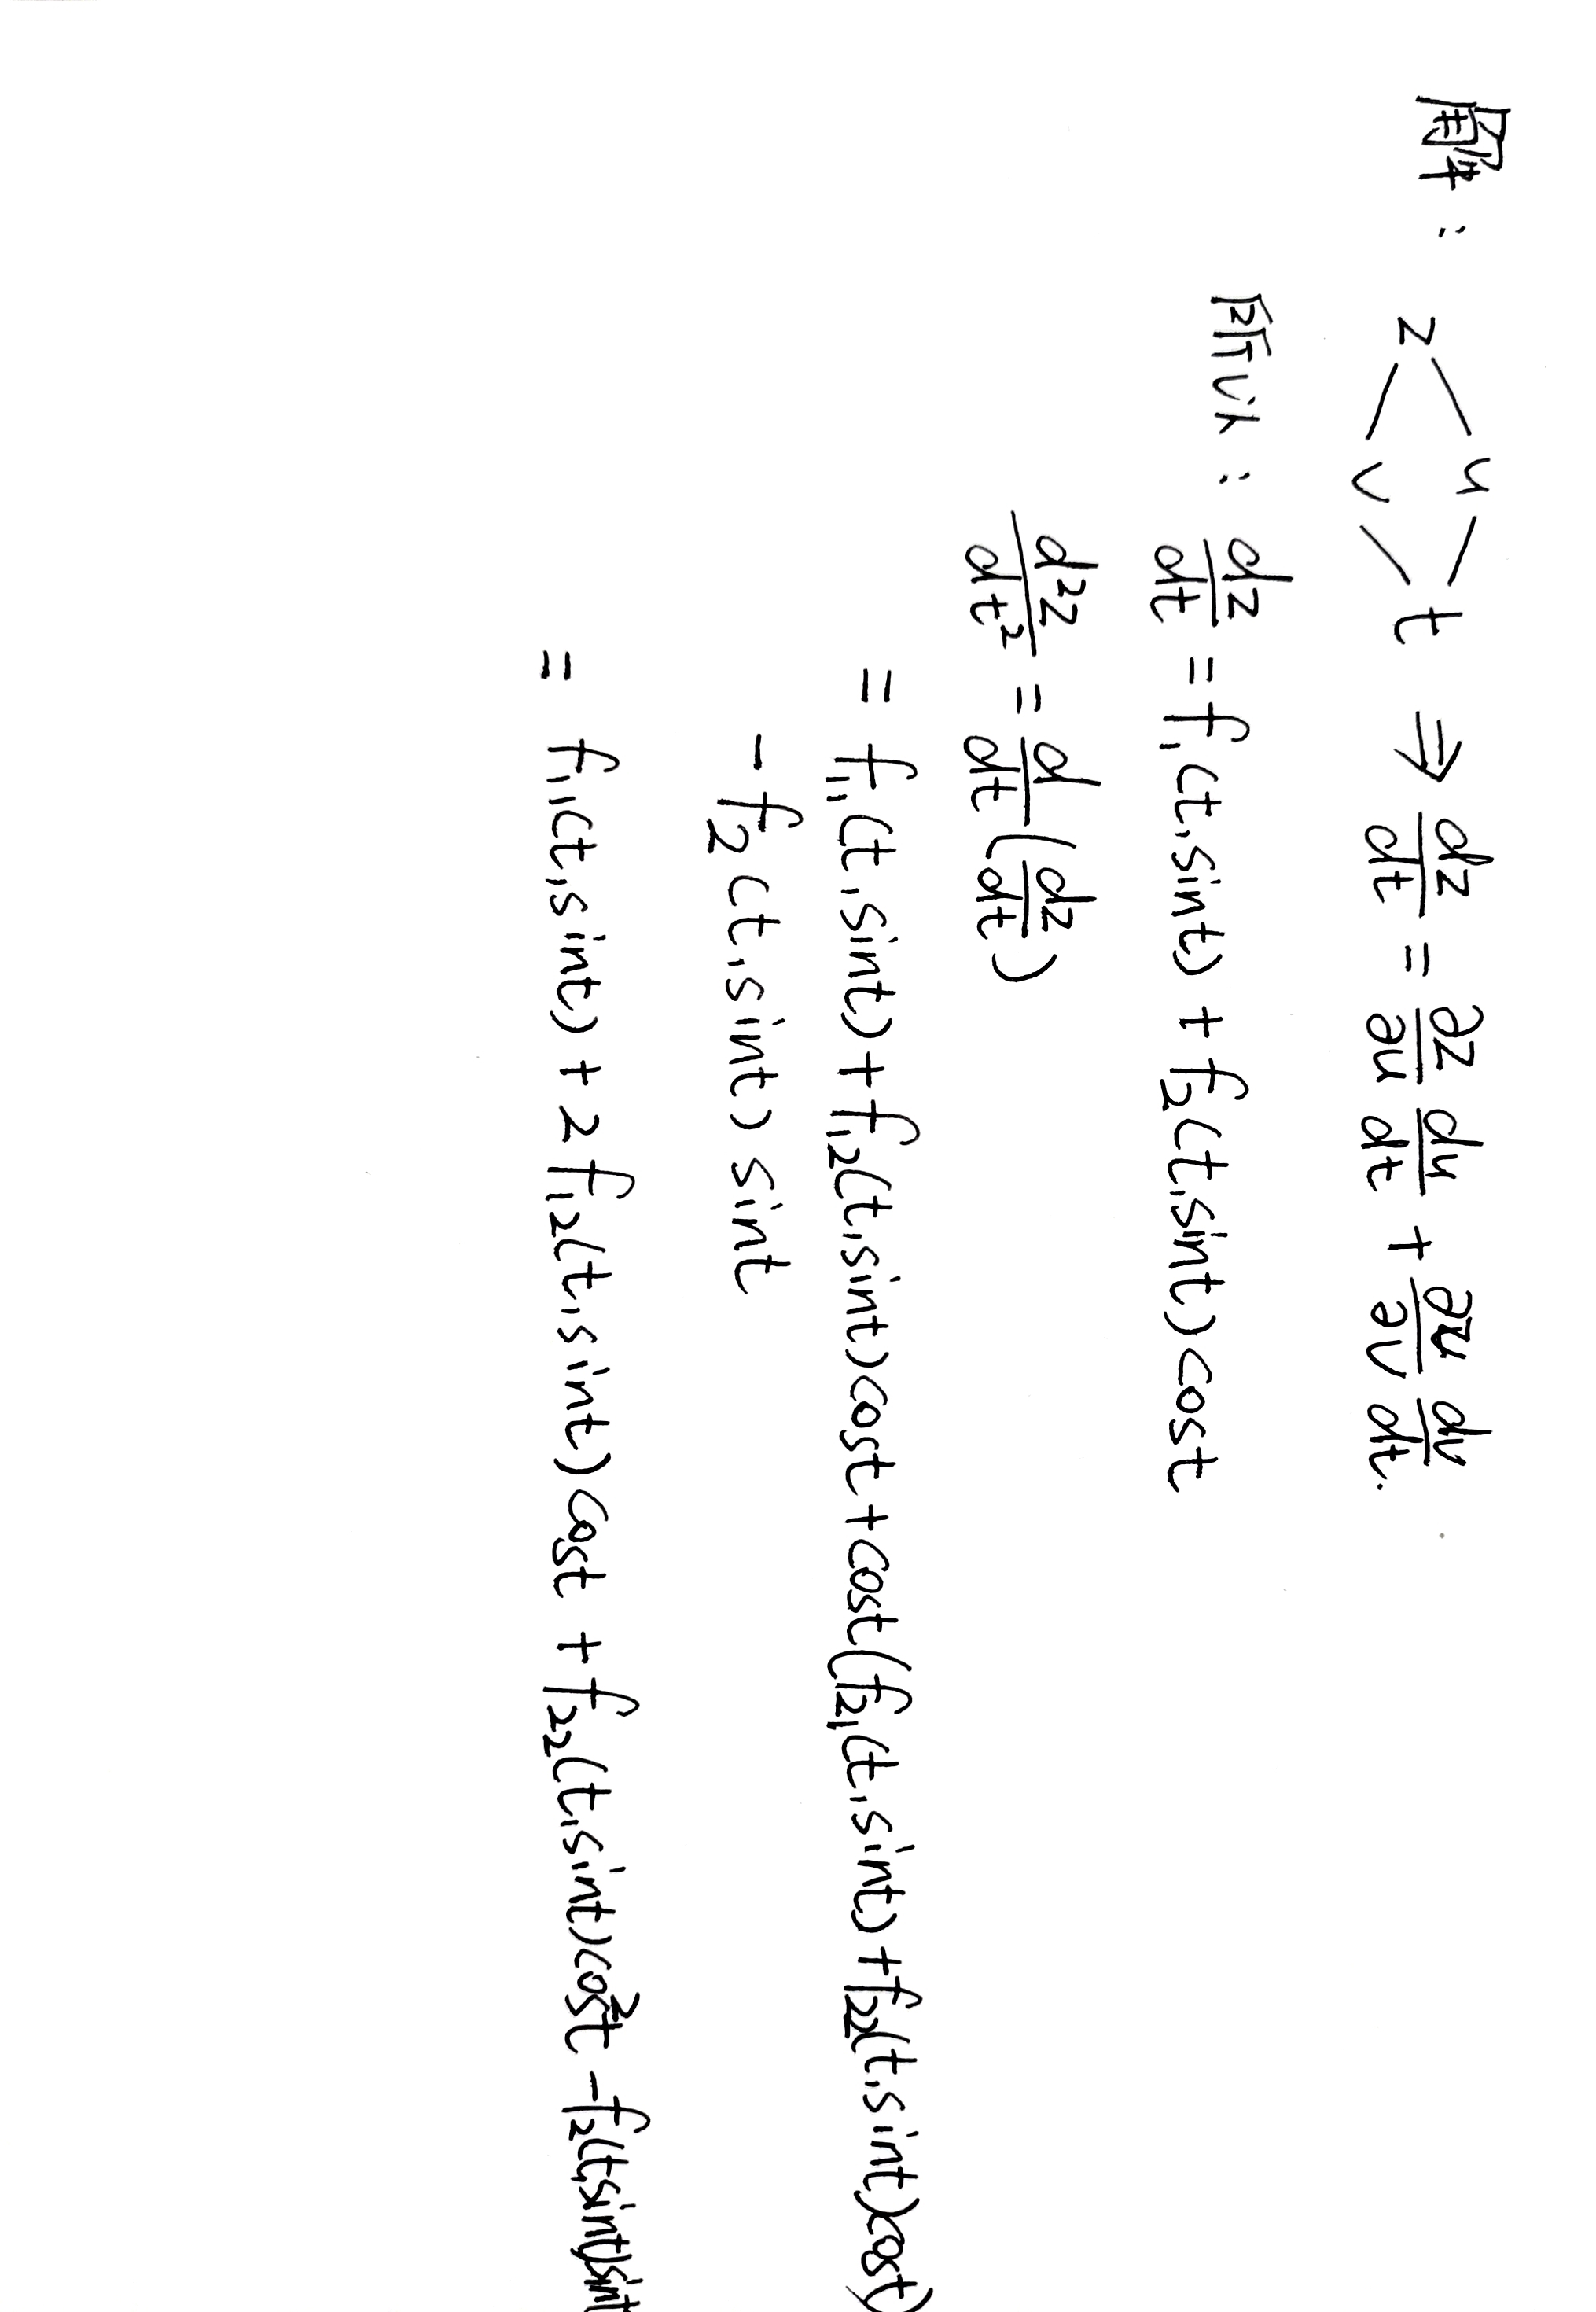 解： z u v t ⇒ dz/dt = ∂z/∂u du/dt + ∂z/∂v dv/dt.
所以： dz/dt = f₁(t,sint) + f₂(t,sint)cost
d²z/dt² = d/dt(dz/dt)
= f₁₁(t,sint)+f₁₂(t,sint)cost+cost(f₂₁(t,sint)+f₂₂(t,sint)cost)
-f₂(t,sint)sint
= f₁₁(t,sint)+2f₁₂(t,sint)cost+f₂₂(t,sint)cos²t-f₂(t,sint)sint